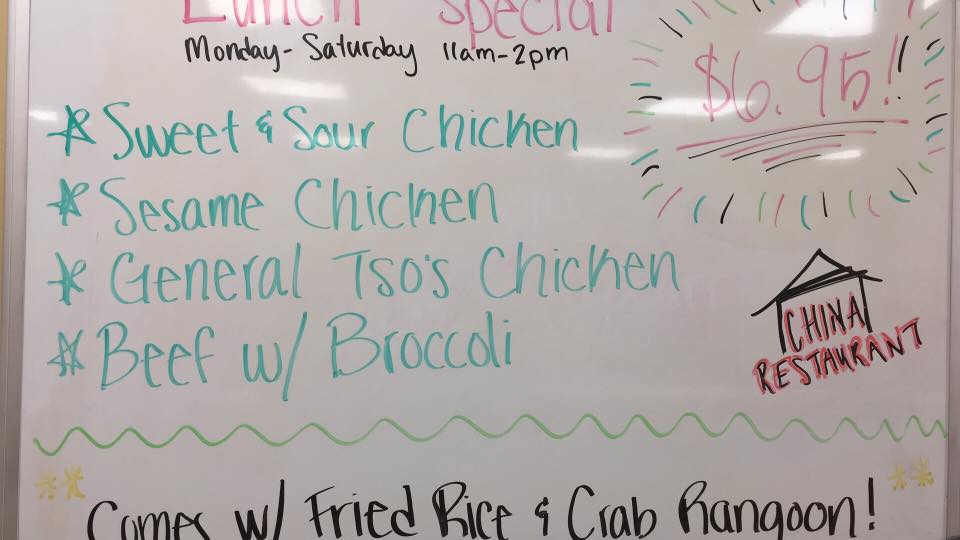 Lunch Special
Monday-Saturday 11am-2pm
$6.95!!
* Sweet & Sour Chicken
* Sesame Chicken
* General Tso's Chicken
* Beef w/ Broccoli
CHINA
RESTAURANT
** Comes w/ Fried Rice & Crab Rangoon! **